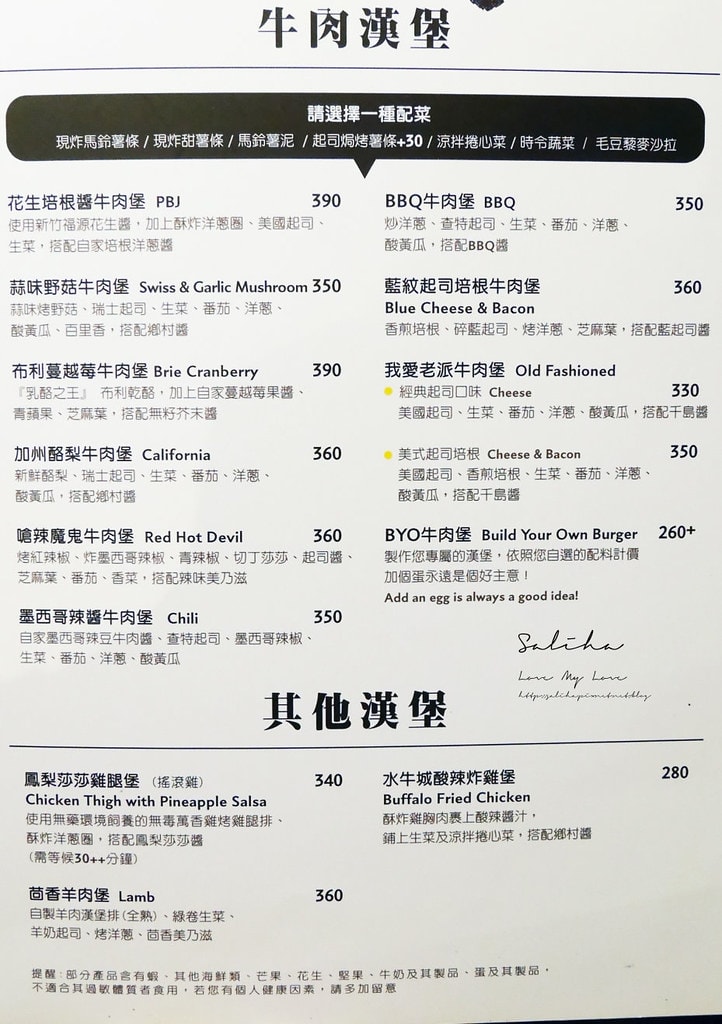 牛肉漢堡
請選擇一種配菜
現炸馬鈴薯條 / 現炸甜薯條 / 馬鈴薯泥 / 起司焗烤薯條+30 / 涼拌捲心菜 / 時令蔬菜 / 毛豆藜麥沙拉
花生培根醬牛肉堡 PBJ 390
使用新竹福源花生醬，加上酥炸洋蔥圈、美國起司、
生菜，搭配自家培根洋蔥醬
蒜味野菇牛肉堡 Swiss & Garlic Mushroom 350
蒜味烤野菇、瑞士起司、生菜、番茄、洋蔥、
酸黃瓜、百里香，搭配鄉村醬
布利蔓越莓牛肉堡 Brie Cranberry 390
『乳酪之王』 布利乾酪，加上自家蔓越莓果醬、
青蘋果、芝麻葉，搭配無籽芥末醬
加州酪梨牛肉堡 California 360
新鮮酪梨、瑞士起司、生菜、番茄、洋蔥、
酸黃瓜，搭配鄉村醬
嗆辣魔鬼牛肉堡 Red Hot Devil 360
烤紅辣椒、炸墨西哥辣椒、青辣椒、切丁莎莎、起司醬、
芝麻葉、番茄、香菜，搭配辣味美乃滋
墨西哥辣醬牛肉堡 Chili 350
自家墨西哥辣豆牛肉醬、查特起司、墨西哥辣椒、
生菜、番茄、洋蔥、酸黃瓜
BBQ牛肉堡 BBQ 350
炒洋蔥、查特起司、生菜、番茄、洋蔥、
酸黃瓜，搭配BBQ醬
藍紋起司培根牛肉堡 360
Blue Cheese & Bacon
香煎培根、碎藍起司、烤洋蔥、芝麻葉，搭配藍起司醬
我愛老派牛肉堡 Old Fashioned
經典起司口味 Cheese 330
美國起司、生菜、番茄、洋蔥、酸黃瓜，搭配千島醬
美式起司培根 Cheese & Bacon 350
美國起司、香煎培根、生菜、番茄、洋蔥、
酸黃瓜，搭配千島醬
BYO牛肉堡 Build Your Own Burger 260+
製作您專屬的漢堡，依照您自選的配料計價
加個蛋永遠是個好主意！
Add an egg is always a good idea!
Saliha
Love My Love
其他漢堡
鳳梨莎莎雞腿堡 （搖滾雞） 340
Chicken Thigh with Pineapple Salsa
使用無藥環境飼養的無毒萬香雞烤雞腿排、
酥炸洋蔥圈，搭配鳳梨莎莎醬
(需等候30++分鐘)
茴香羊肉堡 Lamb 360
自製羊肉漢堡排(全熟)、綠卷生菜、
羊奶起司、烤洋蔥、茴香美乃滋
水牛城酸辣炸雞堡 280
Buffalo Fried Chicken
酥炸雞胸肉裹上酸辣醬汁，
鋪上生菜及涼拌捲心菜，搭配鄉村醬
提醒：部分產品含有蝦、其他海鮮類、芒果、花生、堅果、牛奶及其製品、蛋及其製品，
不適合其過敏體質者食用，若您有個人健康因素，請多加留意